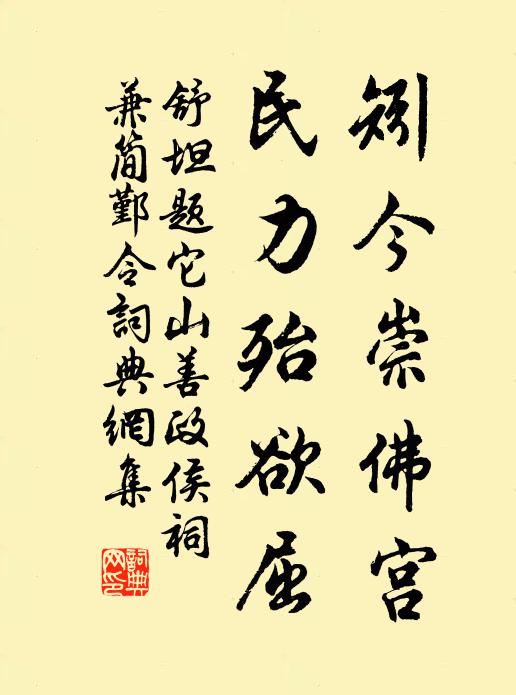 矧今崇佛宫
民力殆欲屈
舒坦题它山善政侯祠
兼简鄞令詞典網集
詞典网印